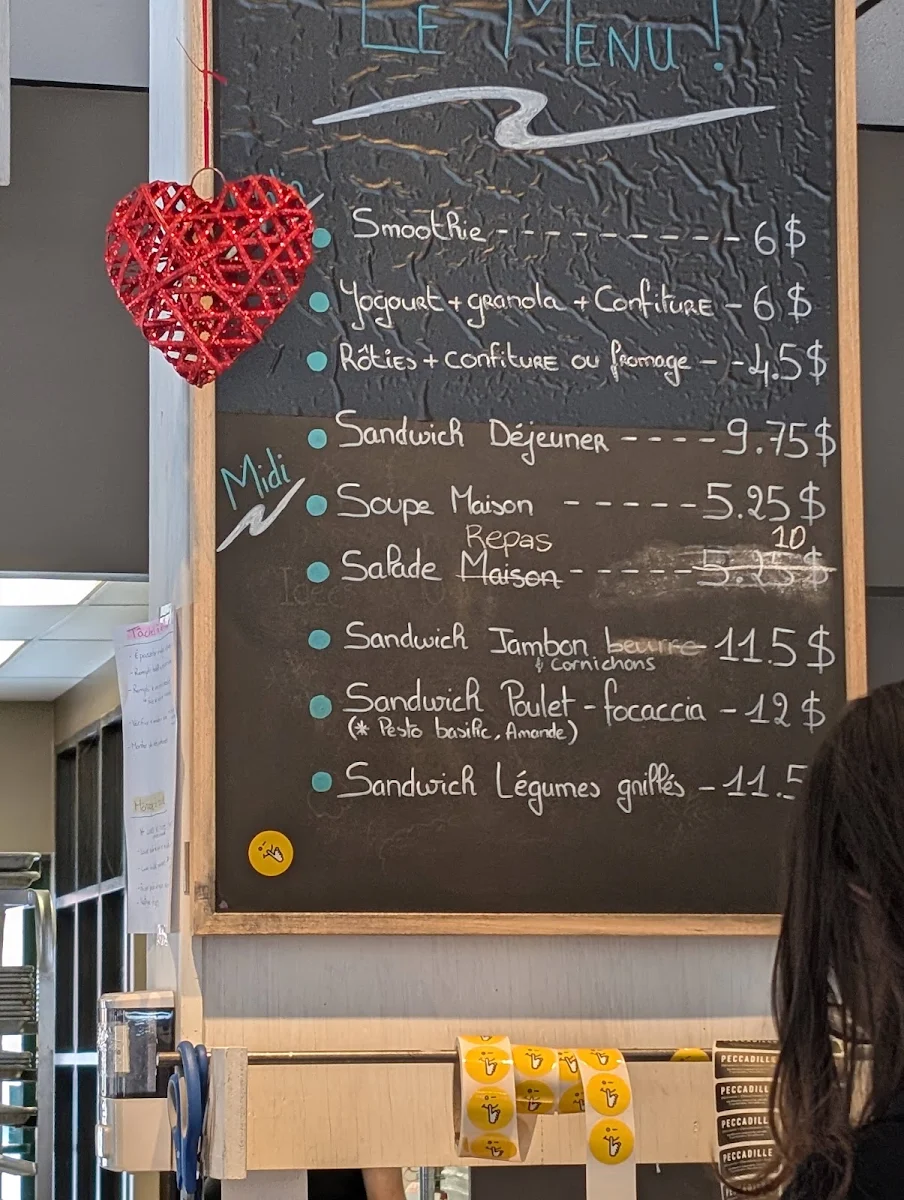 Le Menu !
Smoothie - - - - - - - - - - 6 $
Yogourt + granola + Confiture - 6 $
Rôties + confiture ou fromage - - 4.5 $
Sandwich Déjeuner - - - - 9.75 $
Midi
Soupe Maison - - - - - 5.25 $
Repas 10
Salade Maison - - - - - 5.25 $
Sandwich Jambon beurre 11.5 $
& cornichons
Sandwich Poulet - focaccia - 12 $
(* Pesto basilic, Amande)
Sandwich Légumes grillés - 11.5
PECCADILLE
PECCADILLE
PECCADILLE
PECCADILLE